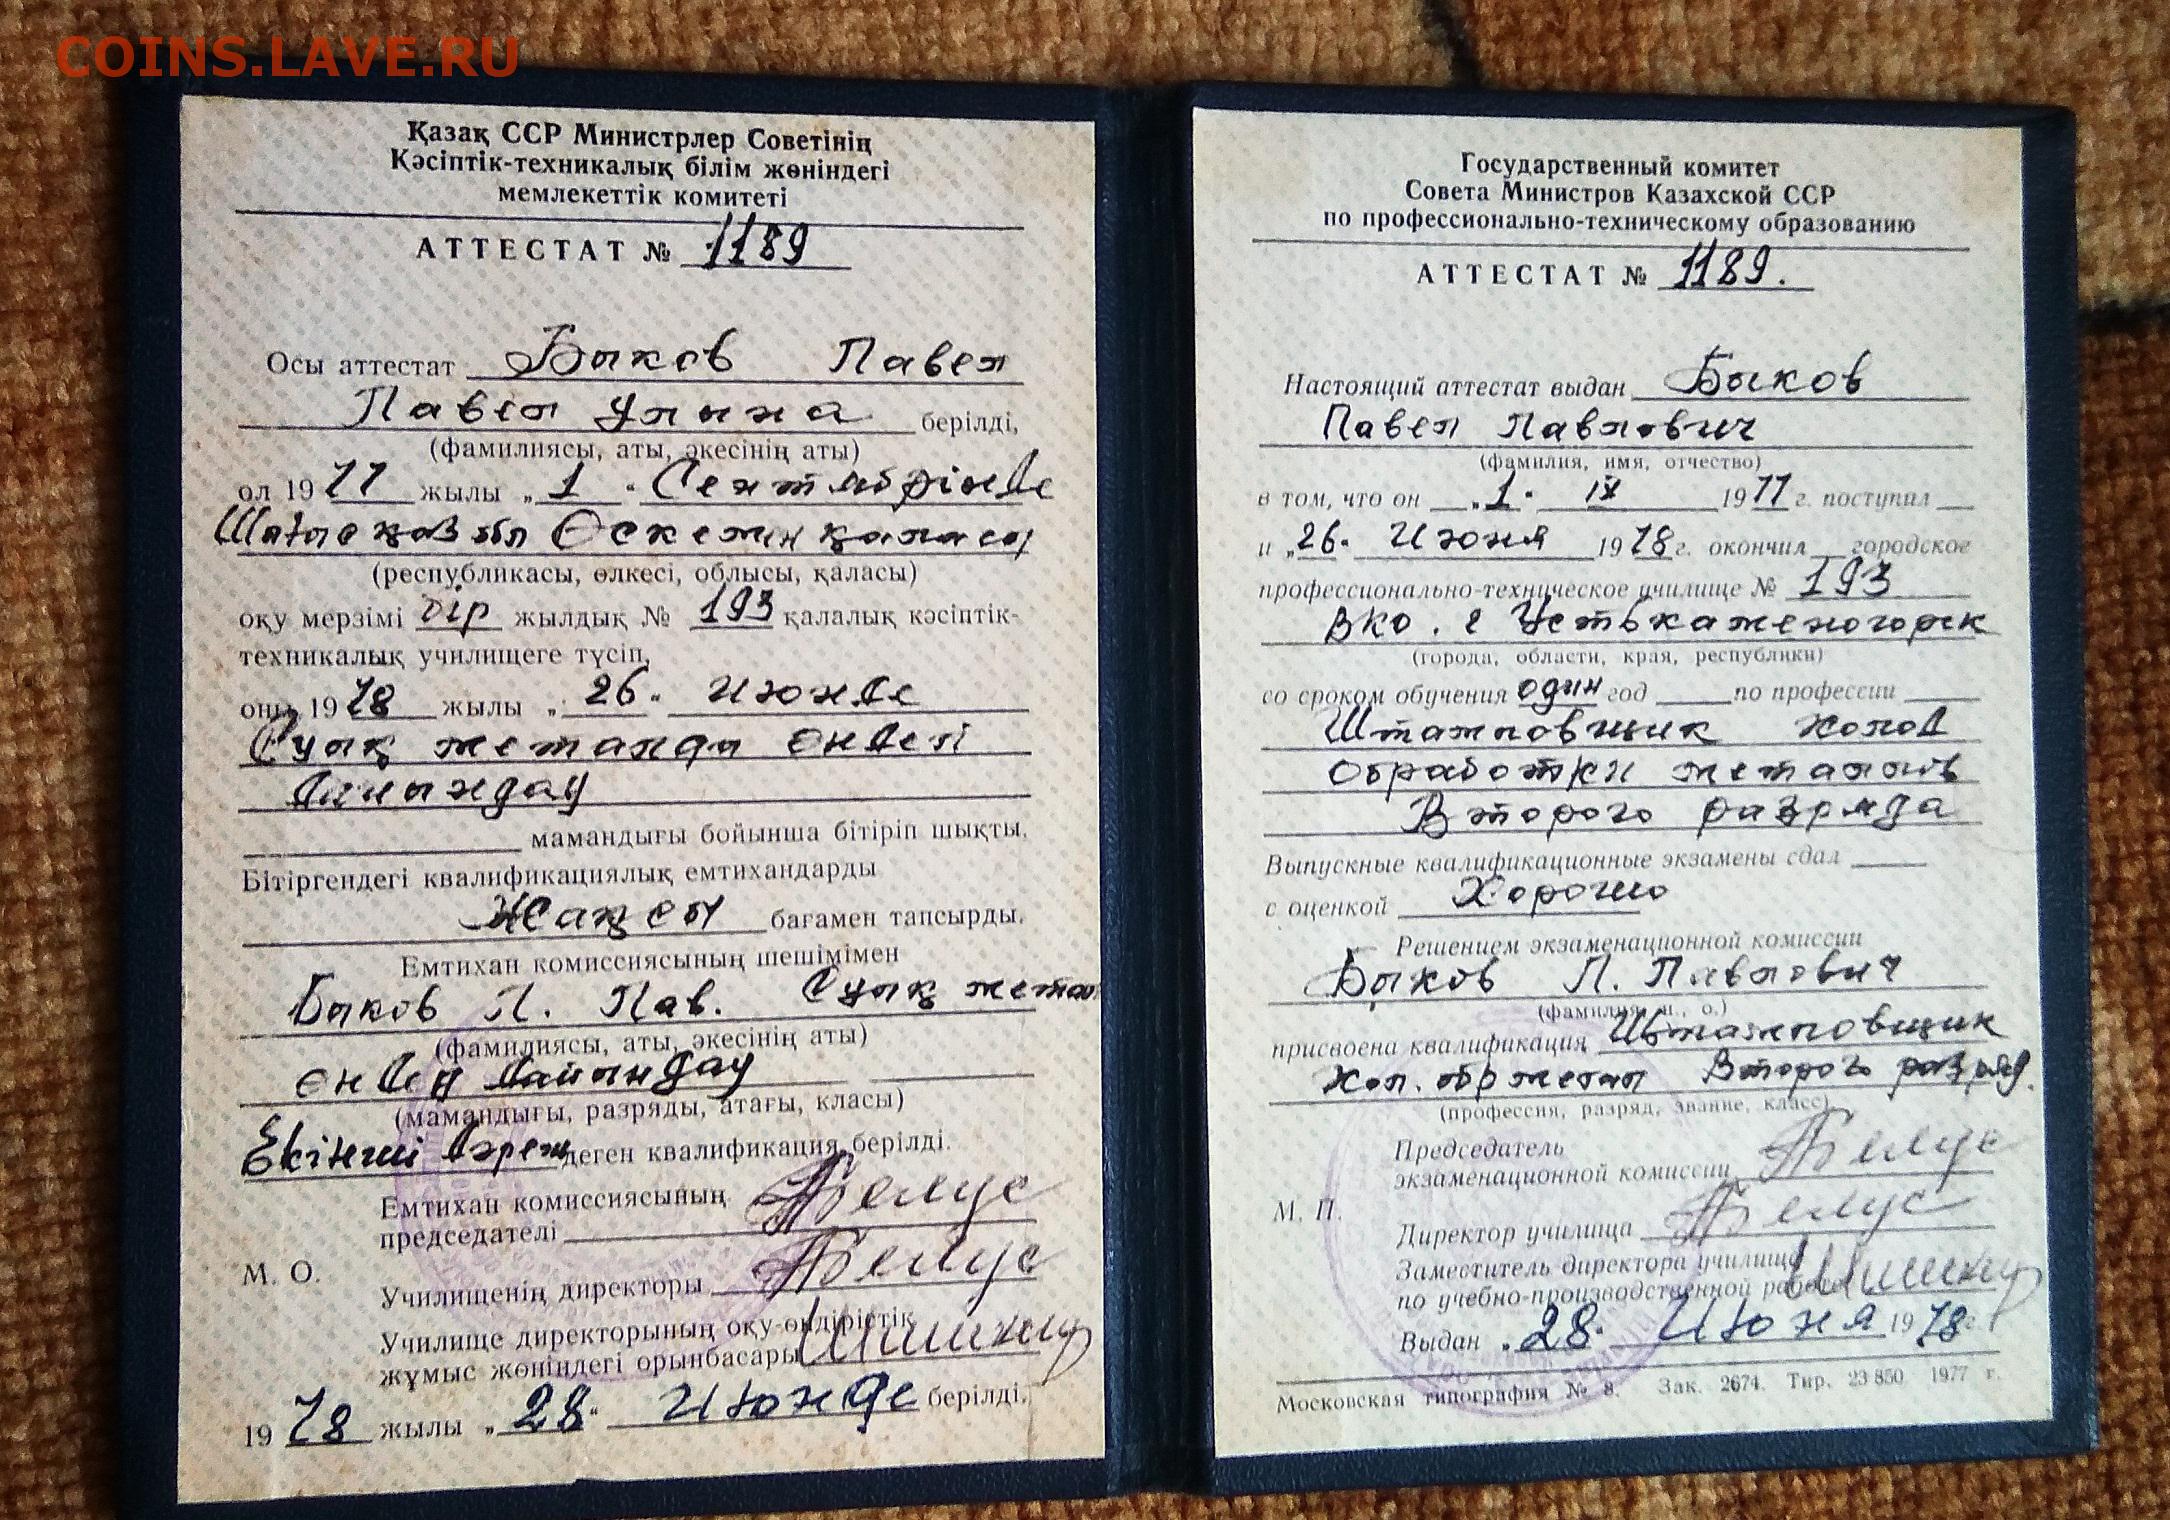 COINS.LAVE.RU
Қазақ ССР Министрлер Советінің
Қәсіптік-техникалық білім жөніндегі
мемлекеттік комитеті
АТТЕСТАТ № 1189
Осы аттестат Быков Павел
Павел улына берілді,
(фамилиясы, аты, әкесінің аты)
ол 1977 жылы „1“ Сентябрінде
обл Өскемен қаласы
(республикасы, өлкесі, облысы, қаласы)
оқу мерзімі бір жылдық № 193 қалалық кәсіптік-
техникалық училищеге түсіп,
оны 1978 жылы „26“ июнде
Суық металды өндегі
дайындау
мамандығы бойынша бітіріп шықты.
Бітіргендегі квалификациялық емтихандарды
Жақсы бағамен тапсырды.
Емтихан комиссиясының шешімімен
Быков П. Пав. Суық метал
(фамилиясы, аты, әкесінің аты)
дайындау
(мамандығы, разряды, атағы, класы)
Екінші дәреж деген квалификация берілді.
Емтихан комиссиясының
председателі
М. О.
Училищенің директоры
Училище директорының оқу-өндірістік
жұмыс жөніндегі орынбасары
1978 жылы „28“ июнде берілді.
Государственный комитет
Совета Министров Казахской ССР
по профессионально-техническому образованию
АТТЕСТАТ № 1189.
Настоящий аттестат выдан Быков
Павел Павлович
(фамилия, имя, отчество)
в том, что он „1“ IX 1977 г. поступил
и „26“ Июня 1978 г. окончил городское
профессионально-техническое училище № 193
ВКО. г Устькаменогорск
(города, области, края, республики)
со сроком обучения один год по профессии
Штамповщик холод
обработки металлов
Второго разряда
Выпускные квалификационные экзамены сдал
с оценкой Хорошо
Решением экзаменационной комиссии
Быков П. Павлович
(фамилия, и., о.)
присвоена квалификация Штамповщик
хол. обр метал Второго разряд.
(профессия, разряд, звание, класс)
Председатель
экзаменационной комиссии
М. П.
Директор училища
Заместитель директора училища
по учебно-производственной работе
Выдан „28“ Июня 1978 г.
Московская типография № 8. Зак. 2674. Тир. 23 850 1977 г.